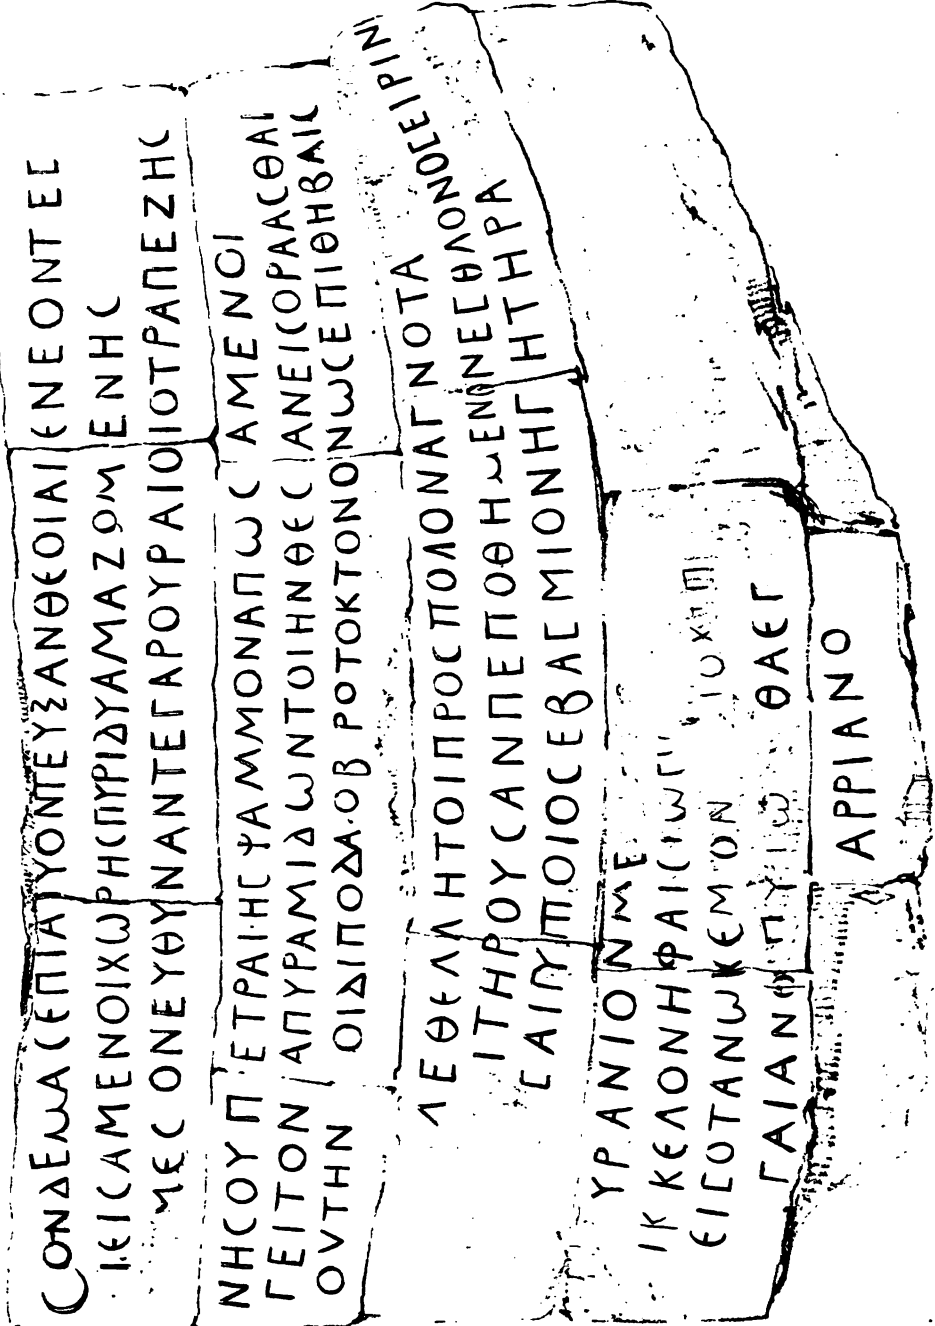 CΟΝΔΕΜΑCΕΠΙΑΓΥΟΝΤΕΥΞΑΝΘΕΟΙΑΙΕΝΕΟΝΤΕC
ΙΕΙCΑΜΕΝΟΙΧΩΡΗCΠΥΡΙΔΥΑΜΑΖΟΜΕΝΗC
ΜΕCΟΝΕΥΘΥΝΑΝΤΕΓΑΡΟΥΡΑΙΟΙΟΤΡΑΠΕΖΗC
ΝΗCΟΥΠΕΤΡΑΙΗCΨΑΜΜΟΝΑΠΩCΑΜΕΝΟΙ
ΓΕΙΤΟΝΑΠΥΡΑΜΙΔΩΝΤΟΙΗΝΘΕCΑΝΕΙCΟΡΑΑCΘΑΙ
ΟΥΤΗΝΟΙΔΙΠΟΔΑ·ΟΒΡΟΤΟΚΤΟΝΟΝΩCΕΠΙΘΗΒΑΙC
ΛΕΘΕΛΛΗΤΟΙΠΡΟCΠΟΛΟΝΑΓΝΟΤΑ
ΙΤΗΡΟΥCΑΝΠΕΠΟΘΗΜΕΝΟΝΕCΘΛΟΝΟCΕΙΡΙΝ
CΑΙΓΥΠΟΙΟCΕΒΑCΜΙΟΝΗΓΗΤΗΡΑ
ΥΡΑΝΙΟΝΜΕ
ΙΚΚΕΛΟΝΗΦΑΙCΙΩΓΙ
ΕΙCΟΤΑΝΩΚΕΜΟΝ
ΓΑΙΑΝΦ ΘΑΕΓ
ΑΡΡΙΑΝΟ